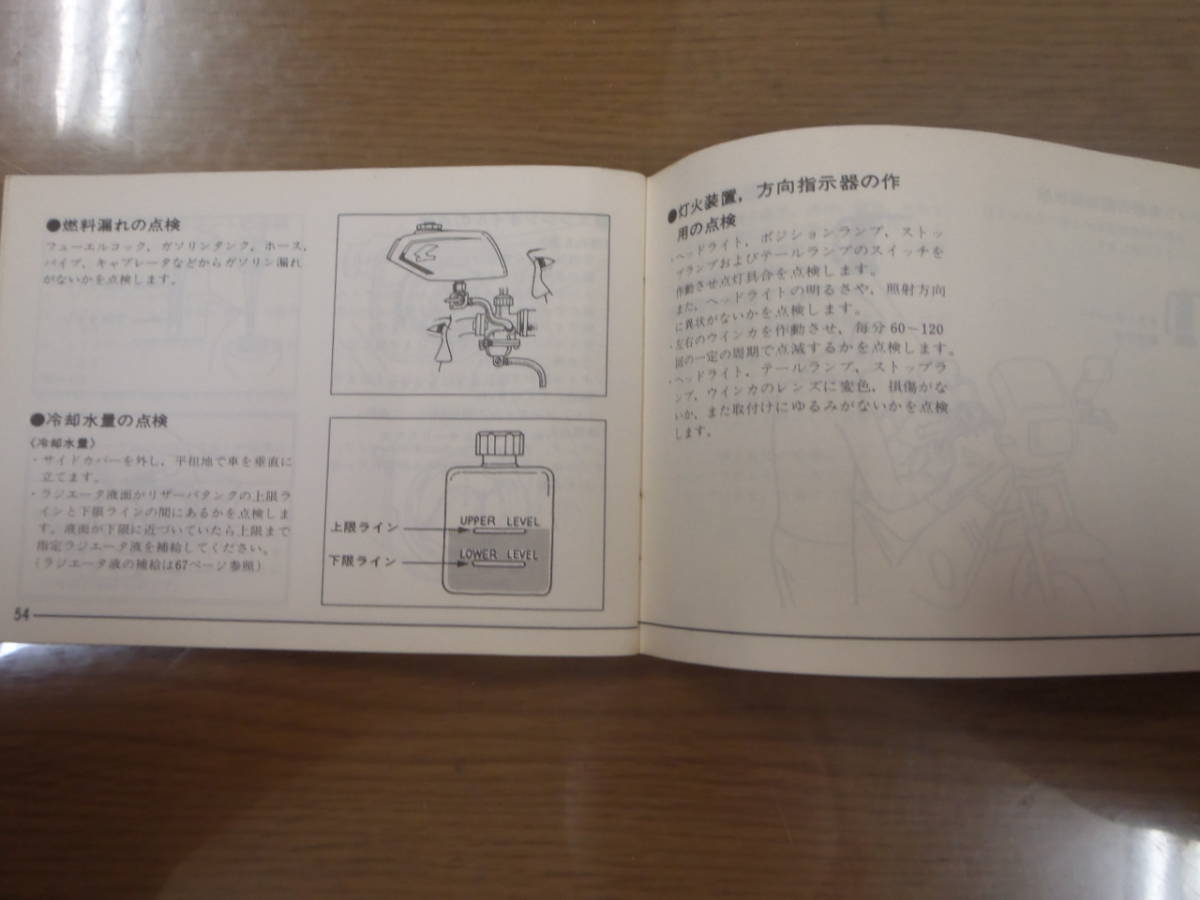 ●燃料漏れの点検
フューエルコック，ガソリンタンク，ホース，
パイプ，キャブレータなどからガソリン漏れ
がないかを点検します。
●冷却水量の点検
〈冷却水量〉
・サイドカバーを外し，平担地で車を垂直に
立てます。
・ラジエータ液面がリザーバタンクの上限ラ
インと下限ラインの間にあるかを点検しま
す。液面が下限に近づいていたら上限まで
指定ラジエータ液を補給してください。
(ラジエータ液の補給は67ページ参照)
上限ライン
下限ライン
UPPER LEVEL
LOWER LEVEL
54
●灯火装置，方向指示器の作
用の点検
・ヘッドライト，ポジションランプ，ストッ
プランプおよびテールランプのスイッチを
作動させ点灯具合を点検します。
また，ヘッドライトの明るさや，照射方向
に異状がないかを点検します。
・左右のウインカを作動させ，毎分60～120
回の一定の周期で点滅するかを点検します。
・ヘッドライト，テールランプ，ストップラ
ンプ，ウインカのレンズに変色，損傷がな
いか，また取付けにゆるみがないかを点検
します。